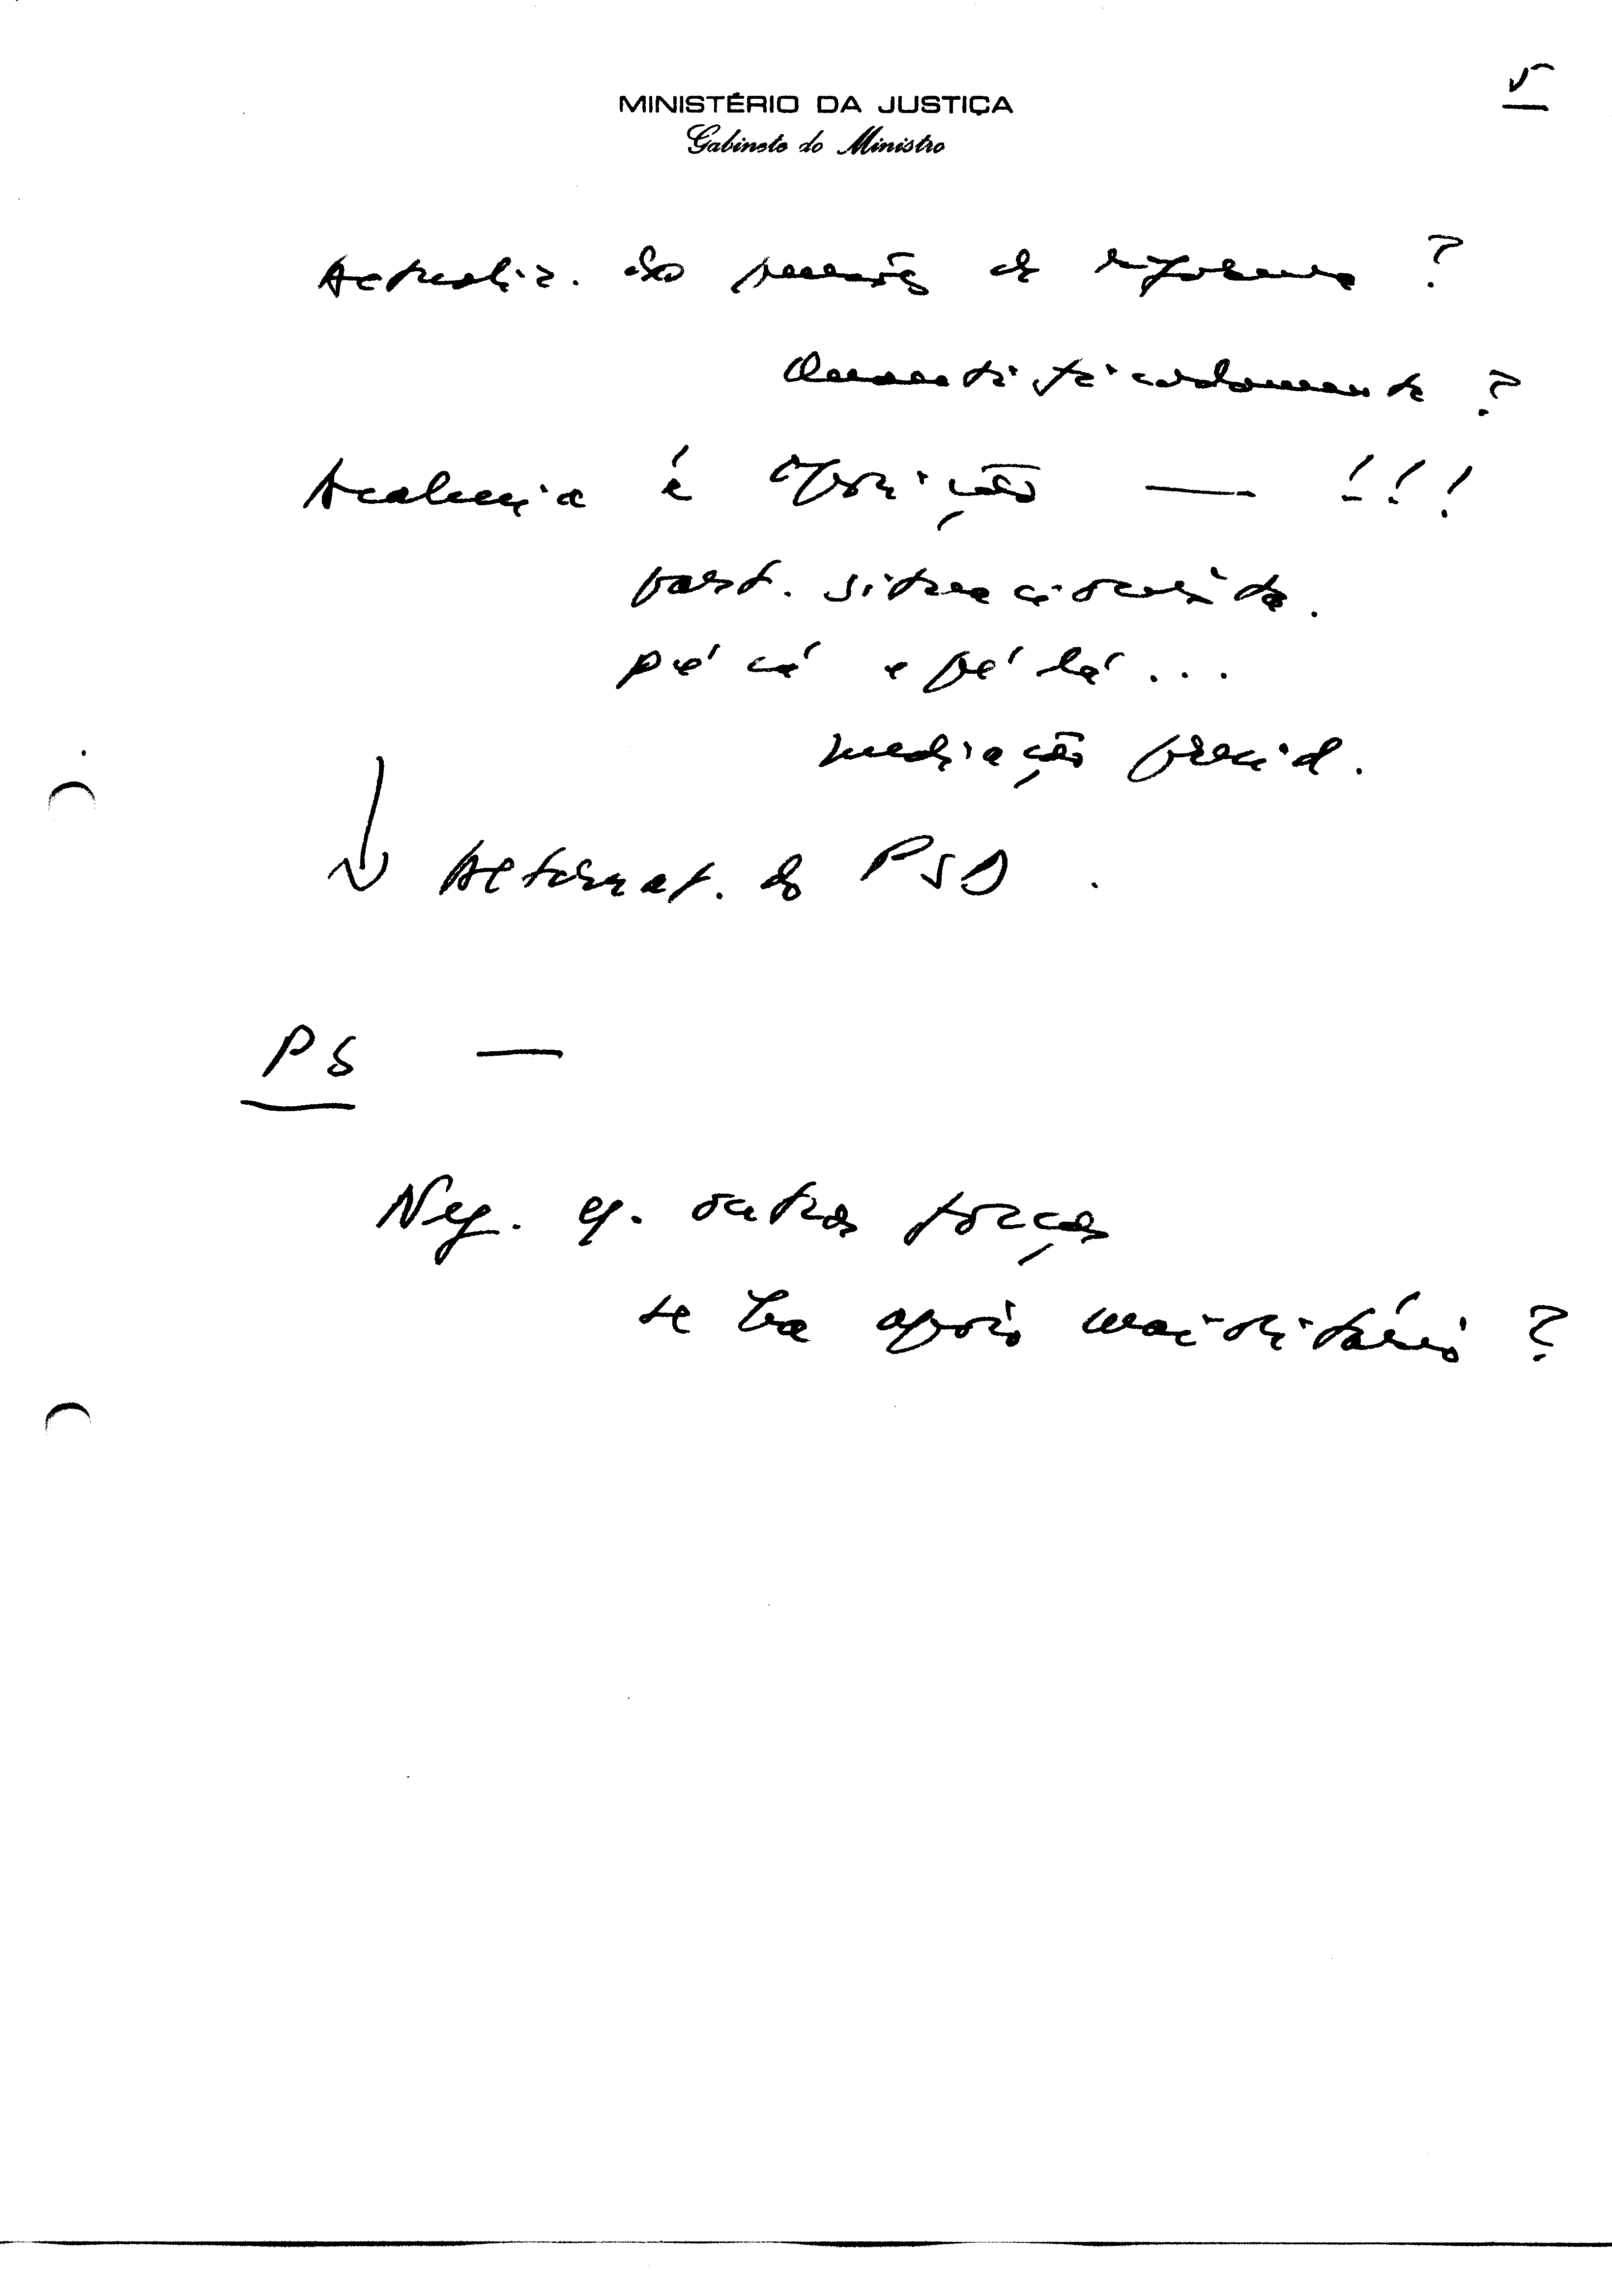 MINISTÉRIO DA JUSTIÇA
Gabinete do Ministro
5
Actualiz. das pensões de reforma ?
Quantificadamente ?
é oposição — !!!
part. situacionista.
pé cá e pé lá...
mediação presid.
Alternat. do PSD
PS —
Neg. c/. outras forças
se há apoio maioritário ?